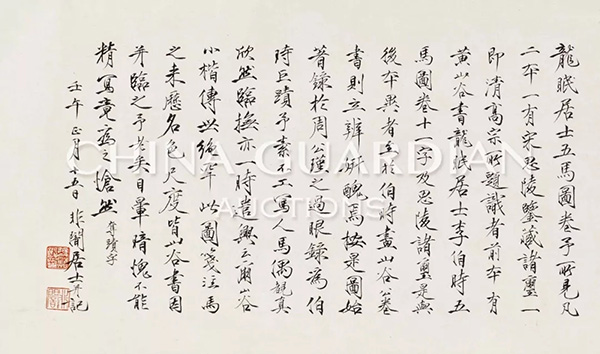 龍眠居士五馬圖卷予所見凡
二本一有宋思陵鑒藏諸璽一
即清高宗所題識者前本有
黃山谷書龍眠居士李伯時五
馬圖卷十一字及思陵諸璽是與
後本異者至於伯時畫山谷箋
書則立辨妍醜焉按是圖始
著錄於周公瑾之過眼錄為伯
時巨蹟予素不工寫人馬偶覩真
欣然臨撫亦一時嘗興云爾山谷
小楷傳世絕罕此圖箋注馬
之來歷名色尺度皆山谷書因
并臨之予老矣目暈睛愧不能
精寫竟為之愴然 奪蹟字
壬午正月十五日非闇居士并記
CHINA GUARDIAN
AUCTIONS